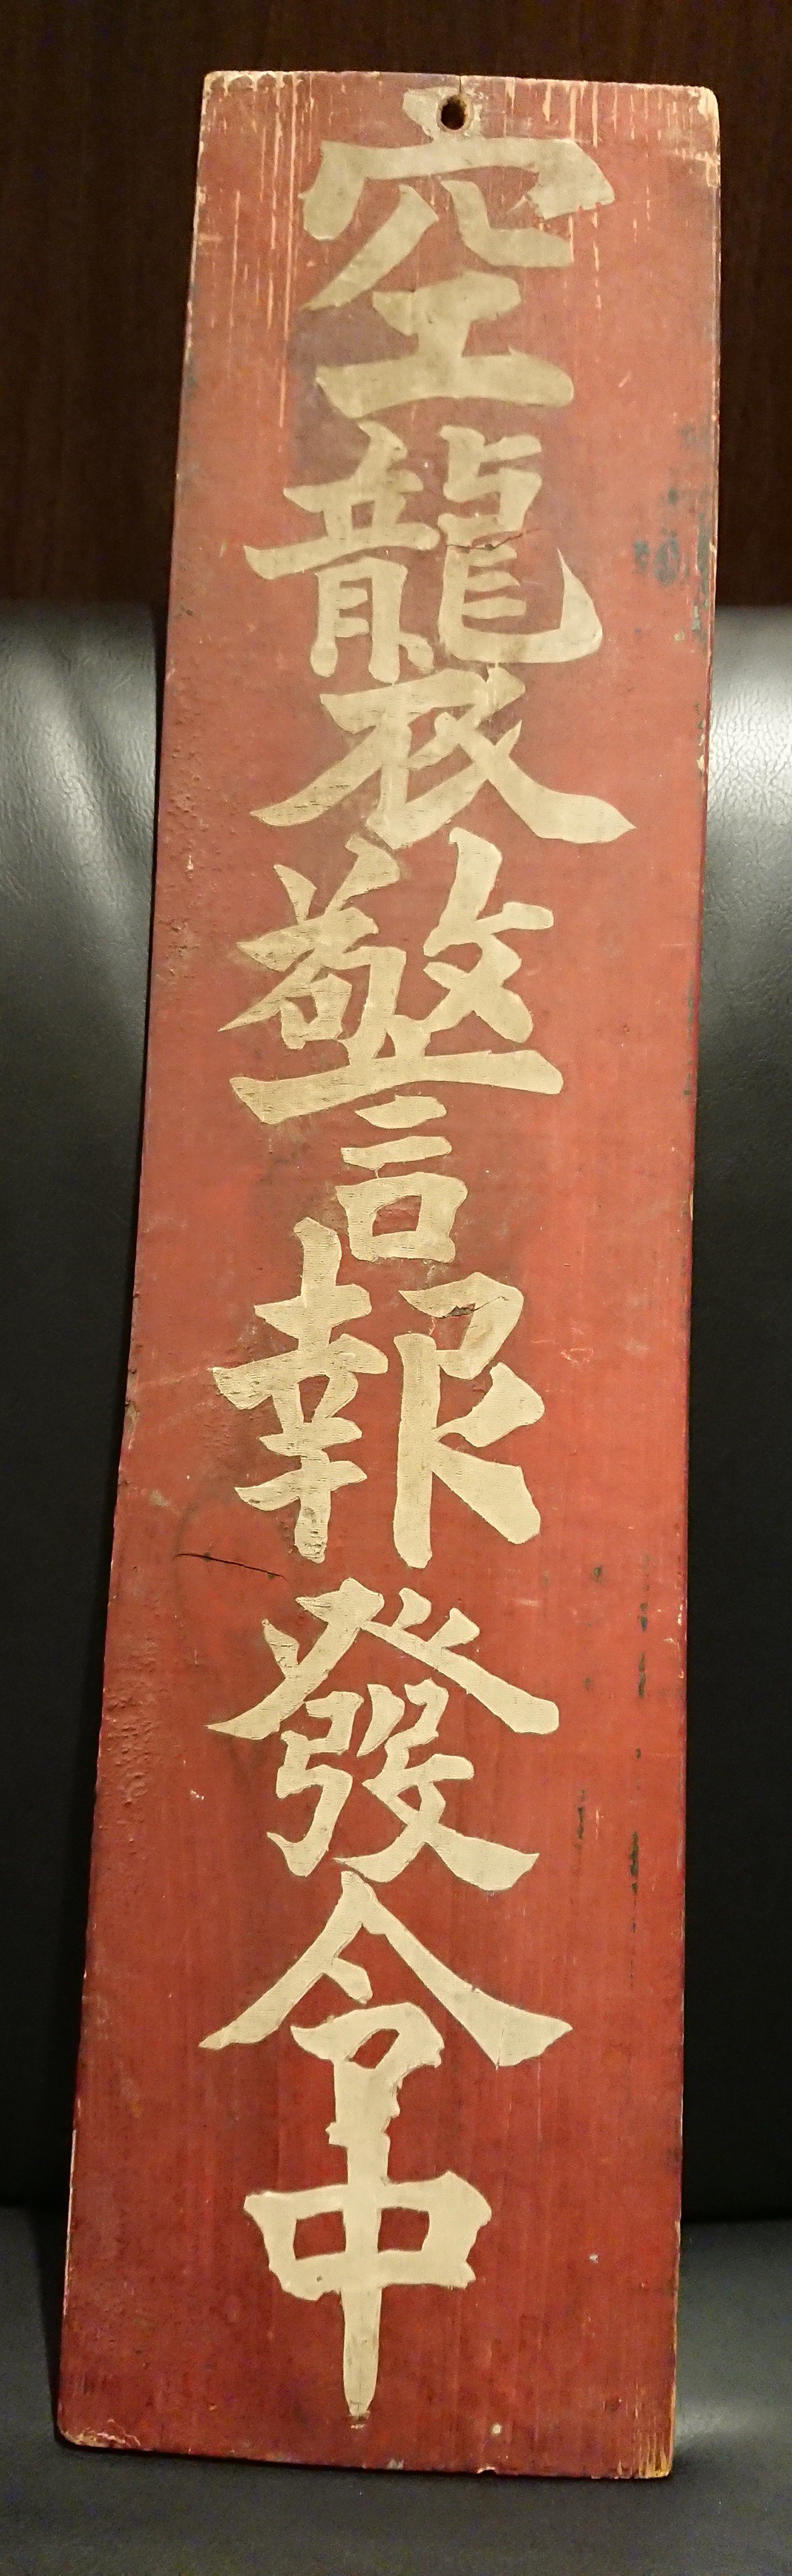 空襲警報發令中